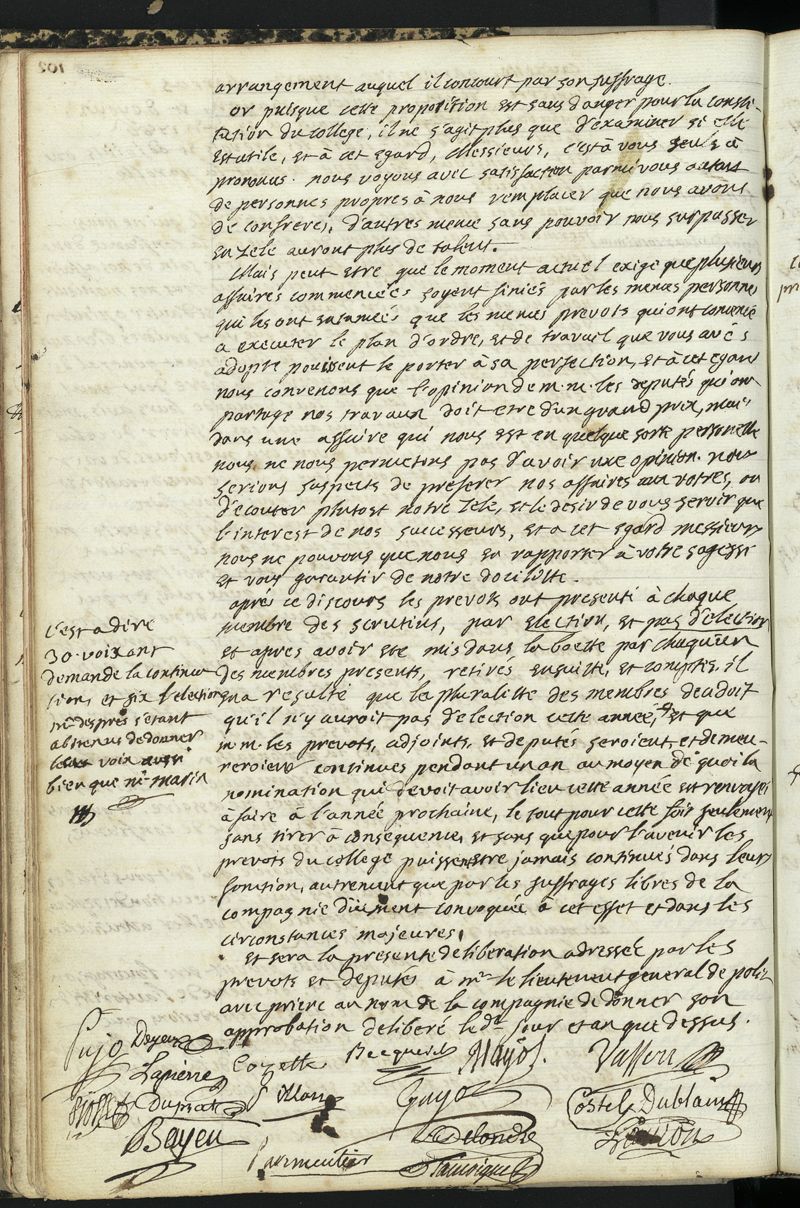 102
arrangement auquel il concourt par son suffrage.
or puisque cette proposition est sans danger pour la consti-
tution du college, il ne s'agit plus que d'examiner si elle
est utile, et à cet egard, Messieurs, c'est à vous seuls à
prononcer. nous voyons avec satisfaction parmi vous autant
de personnes propres à nous remplacer que nous avons
de confreres, d'autres meme sans pouvoir nous surpasser
en zele auront plus de talent.
Mais peut etre que le moment actuel exige que plusieurs
affaires commencées soyent finies par les memes personnes
qui les ont entamées que les memes prevots qui ont commencé
a executer le plan d'ordre, et de travail que vous avés
adopté puissent le porter à sa perfection, et à cet egard
nous convenons que l'opinion de m.m. les deputés qui ont
partagé nos travaux doit etre d'un grand prix, mais
dans une affaire qui nous est en quelque sorte personelle
nous ne nous permettons pas d'avoir une opinion. nous
serions suspects de preferer nos affaires aux votres, ou
d'ecouter plutost notre zele, et le desir de vous servir que
l'interest de nos successeurs, et a cet egard messieurs
nous ne pouvons que nous en rapporter à votre sagesse
et vous garantir de notre docilité.
après ce discours les prevots ont presenté à chaque
membre des scrutins, par election, et pas d'election
et apres avoir eté mis dans la boette par chaqu'un
des membres presents, retirés ensuitte, et comptés, il
en a resulté que la pluralité des membres decidoit
qu'il n'y auroit pas d'election cette année, et que
m.m. les prevots, adjoints, et deputés seroient, et demeu-
reroient continués pendant un an au moyen de quoi la
nomination qui devoit avoir lieu cette année est renvoyée
à faire à l'année prochaine, le tout pour cette fois seulement
sans tirer à consequence, et sans que pour l'avenir les
prevots du college puissent etre jamais continués dans leurs
fonction, autrement que par les suffrages libres de la
compagnie dûement convoquée à cet effet et dans les
circonstances majeures.
et sera la presente deliberation adressée par les
prevots et deputés à mr. le lieutenent general de police
avec priere au nom de la compagnie de donner son
approbation deliberé led. jour et an que dessus.
c'est a dire
30. voix ont
demandé la continua
tion, et six l'election
mr. desprès s'etant
abstenus de donner
leur voix aussi
bien que mr. marin
Pujo Deyeux Cozette Becqueret Mayol Vassou
Lapierre Dumat Sillan Guyo Costel Dublanc
Bayen Delondre
Parmentier